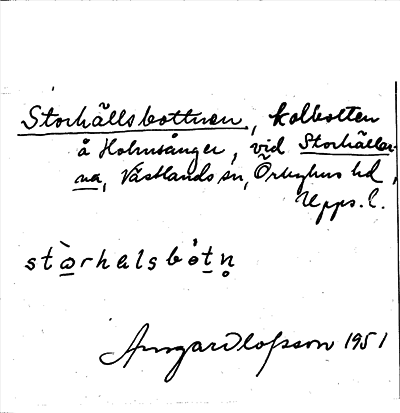 Storhällsbottnen, kolbotten
å Holmsånger, vid Storhällar-
na, Västlands sn, Örbyhus hd,
Upps. l.
stɷ̀rhɐlsbòtn̥
Armgard Olofsson 1951